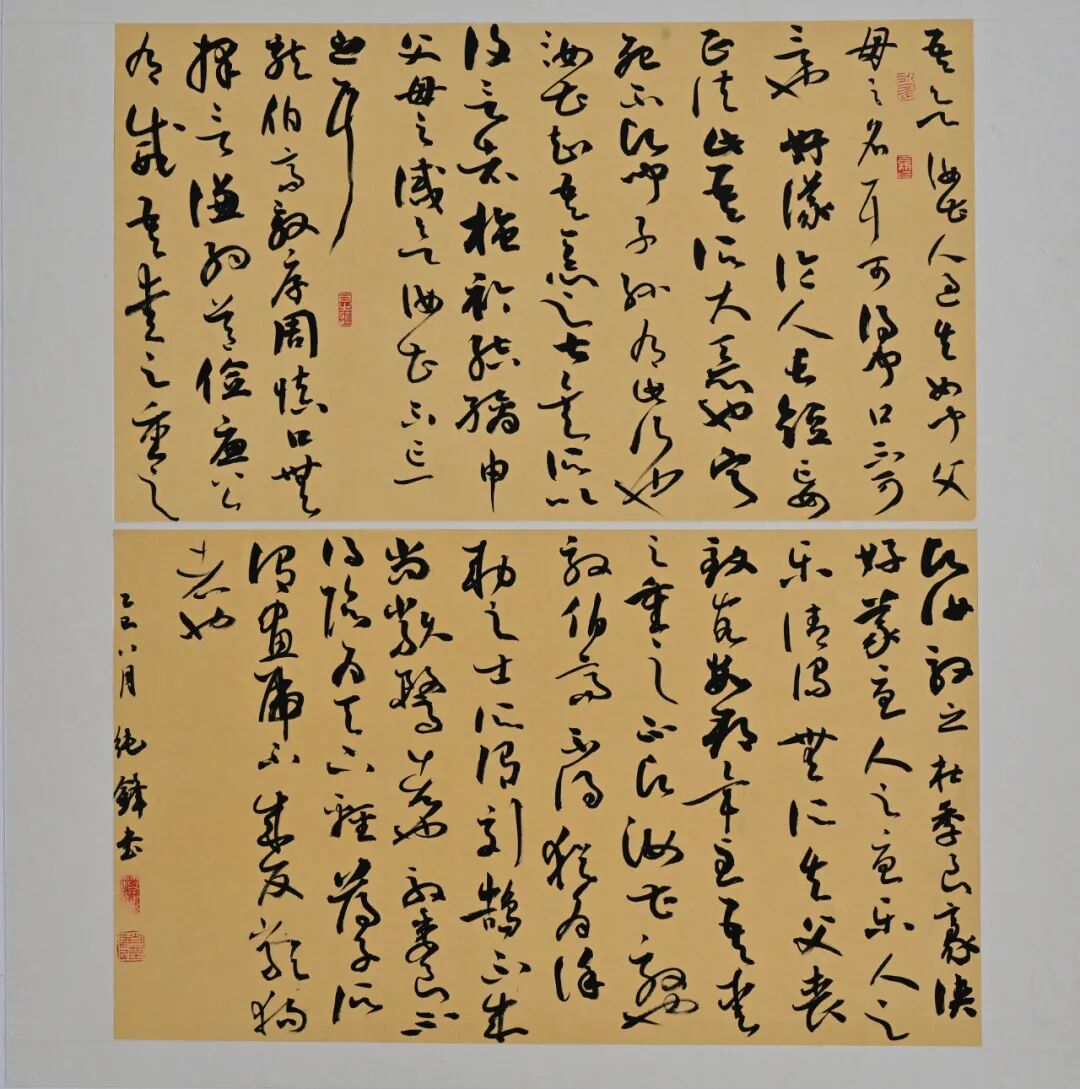 吾欲汝曹人過失如聞父
母之名耳可得聞口不可
言也好議論人長短妄
正法此吾所大惡也寧
死不願聞子孫有此行也
汝曹知吾惡之甚矣所以
復言者施衿結縭申
父母之誡欲汝曹不忘
之耳
龍伯高敦厚周慎口無
擇言謙約節儉廉公
有威吾愛之重之
願汝效之杜季良豪俠
好義憂人之憂樂人之
樂清濁無所失父喪
致客數郡畢至吾愛
之重之不願汝曹效也
效伯高不得猶為謹
勅之士所謂刻鵠不成
尚類鶩者也效季良不
得陷為天下輕薄子所
謂畫虎不成反類狗
者也
乙巳八月 純鋒書